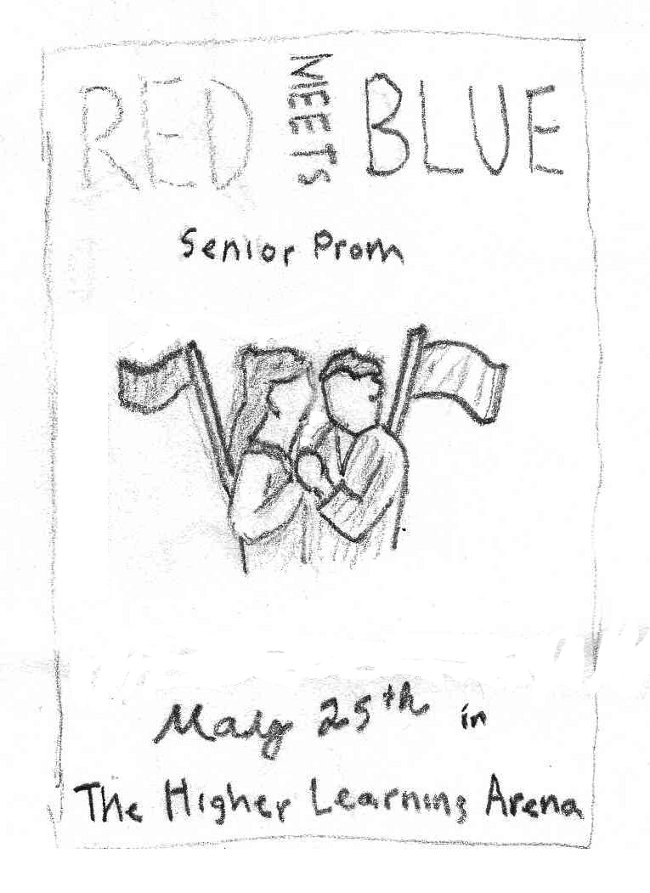 RED MEETS BLUE
Senior Prom
May 25th in
The Higher Learning Arena